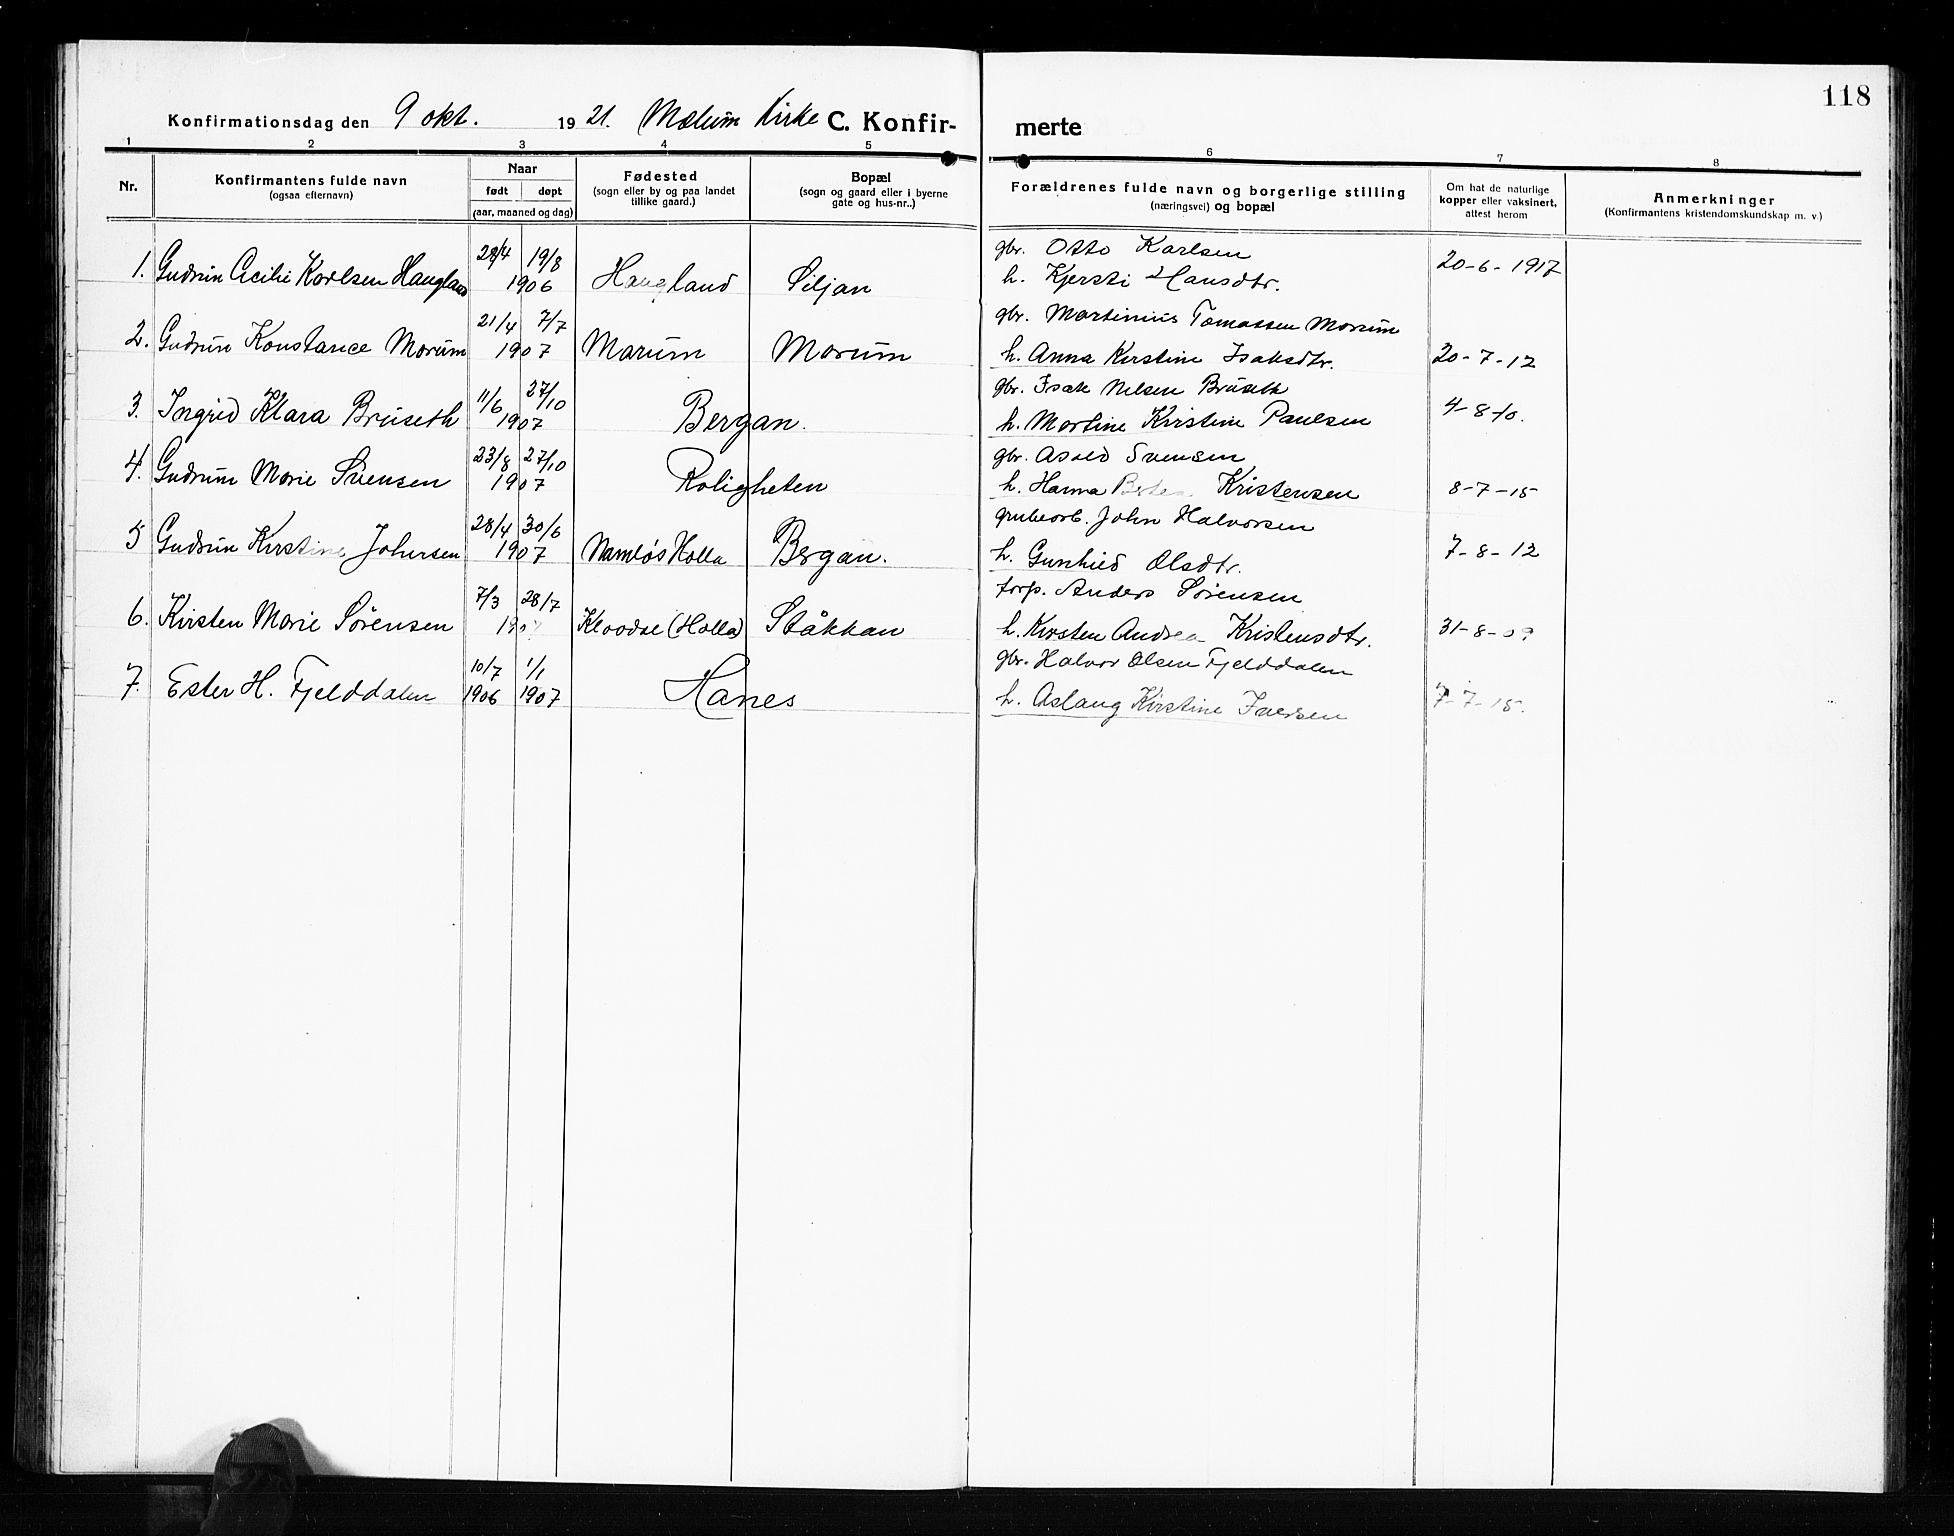 118
Konfirmationsdag den 9 okt. 1921. Mælum Kirke C. Konfir- merte
1 2 3 4 5 6 7 8
Nr.
Konfirmantens fulde navn
(ogsaa efternavn)
Naar
født døpt
(aar, maaned og dag)
Fødested
(sogn eller by og paa landet
tillike gaard.)
Bopæl
(sogn og gaard eller i byerne
gate og hus-nr..)
Forældrenes fulde navn og borgerlige stilling
(næringsvei) og bopæl
Om hat de naturlige
kopper eller vaksinert,
attest herom
Anmerkninger
(Konfirmantens kristendomskundskap m. v.)
28/4 19/8 gbr. Otto Karlsen
1. Gudrun Cecilie Karlsen Haugland 1906 Haugland Siljan h. Kjersti Hansdtr. 20-6-1917
21/4 7/7 gbr. Martinius Tomassen Morum
2. Gudrun Konstance Morum 1907 Marum Morum h. Anna Kirstine Isaksdtr. 20-7-12
11/6 27/10 gbr. Isak Nilsen Bruseth
3. Ingrid Klara Bruseth 1907 Bergan. h. Martine Kirstine Paulsen 4-8-10.
23/8 27/10 gbr. Asold Svensen
4. Gudrun Marie Svensen 1907 Roligheten h. Hanna Kristensen 8-7-15
28/4 30/6 grubearb. John Halvorsen
5 Gudrun Kirstine Johnsen 1907 Namløs Holla Bergan. h. Gunhild Olsdtr. 7-8-12
7/3 28/7 torp. Anders Sörensen
6. Kirsten Marie Sörensen 1907 (Holla) Ståkkan h. Kirsten Andrea Kristensdtr. 31-8-09
10/7 1/1 gbr. Halvor Olsen Fjelddalen
7. Ester H. Fjelddalen 1906 1907 Hanes h. Aslaug Kirstine Iversen 7-7-15.